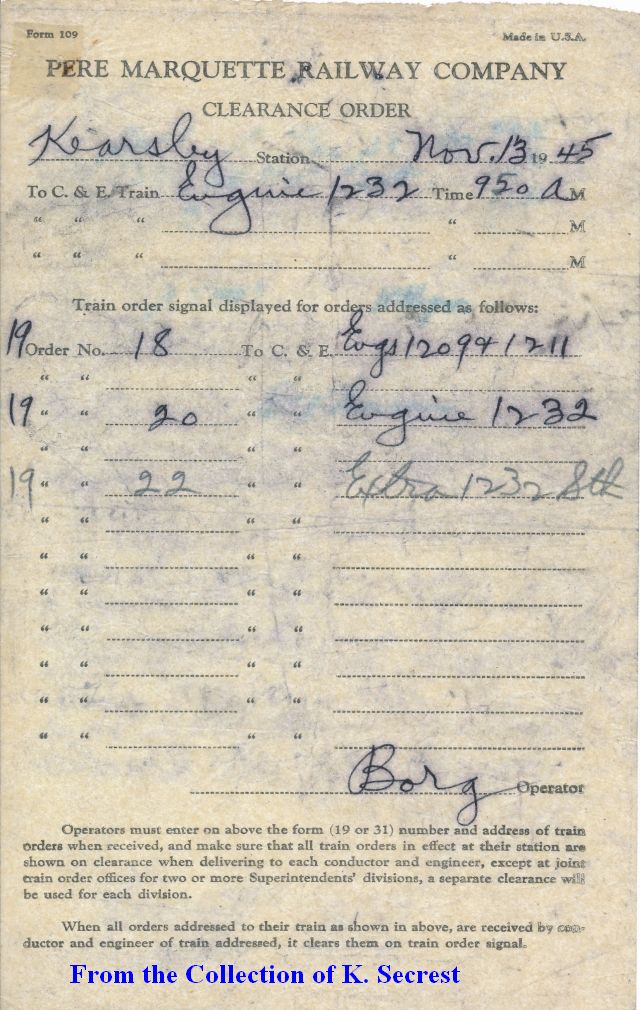 Form 109 Made in U.S.A.
PERE MARQUETTE RAILWAY COMPANY
CLEARANCE ORDER
Kearsley Station Nov. 13 1945
To C. & E. Train Engine 1232 Time 950 A M
" " " " M
" " " " M
Train order signal displayed for orders addressed as follows:
19 Order No. 18 To C. & E. Engs 1209 & 1211
" " " "
19 " " 20 " " Engine 1232
" " " "
19 " " 22 " " Extra 1232 Sth
" " " "
" " " "
" " " "
" " " "
" " " "
" " " "
" " " "
Borg Operator
Operators must enter on above the form (19 or 31) number and address of train
orders when received, and make sure that all train orders in effect at their station are
shown on clearance when delivering to each conductor and engineer, except at joint
train order offices for two or more Superintendents' divisions, a separate clearance will
be used for each division.
When all orders addressed to their train as shown in above, are received by con-
ductor and engineer of train addressed, it clears them on train order signal.
From the Collection of K. Secrest